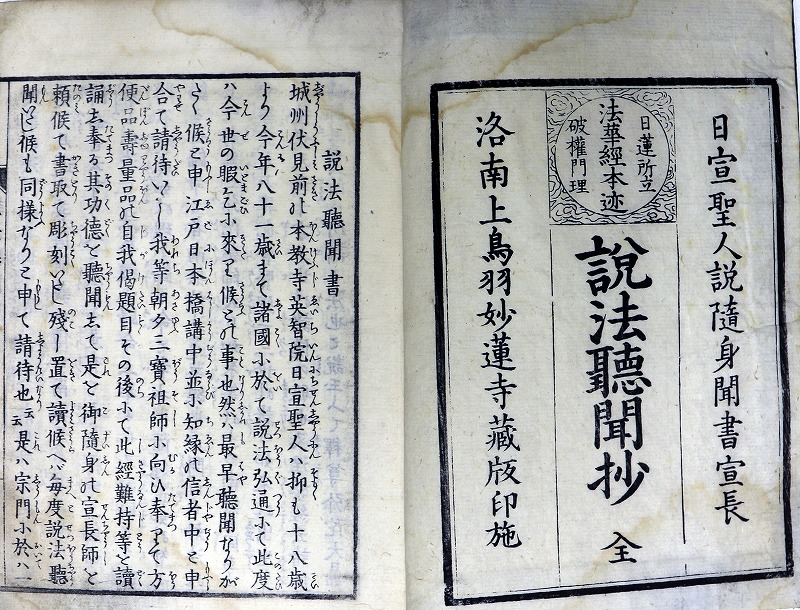 日宣聖人説隨身聞書宣長
日蓮所立
法華經本迹
破權門理
説法聽聞抄 全
洛南上鳥羽妙蓮寺藏版印施
説法聽聞書
城州伏見前の本教寺英智院日宣聖人ハ抑も十八歳
より今年八十一歳まて諸國小於て説法弘通小て此度
ハ今世の暇乞小來り候との事也然ハ最早聽聞なりが
たく候と申江戸日本橋講中並小知縁の信者中と申
合て請待いたし我等朝夕三寶祖師小向ひ奉りて方
便品壽量品の自我偈題目その後小て此經難持等と讀
誦し奉る其功德と聽聞して是と御隨身の宣長師と
頼候て書取て彫刻いたし殘し置て讀候へバ毎度説法聽
聞いたし候も同様なりと申て請待也云云是ハ宗門小於ハ一